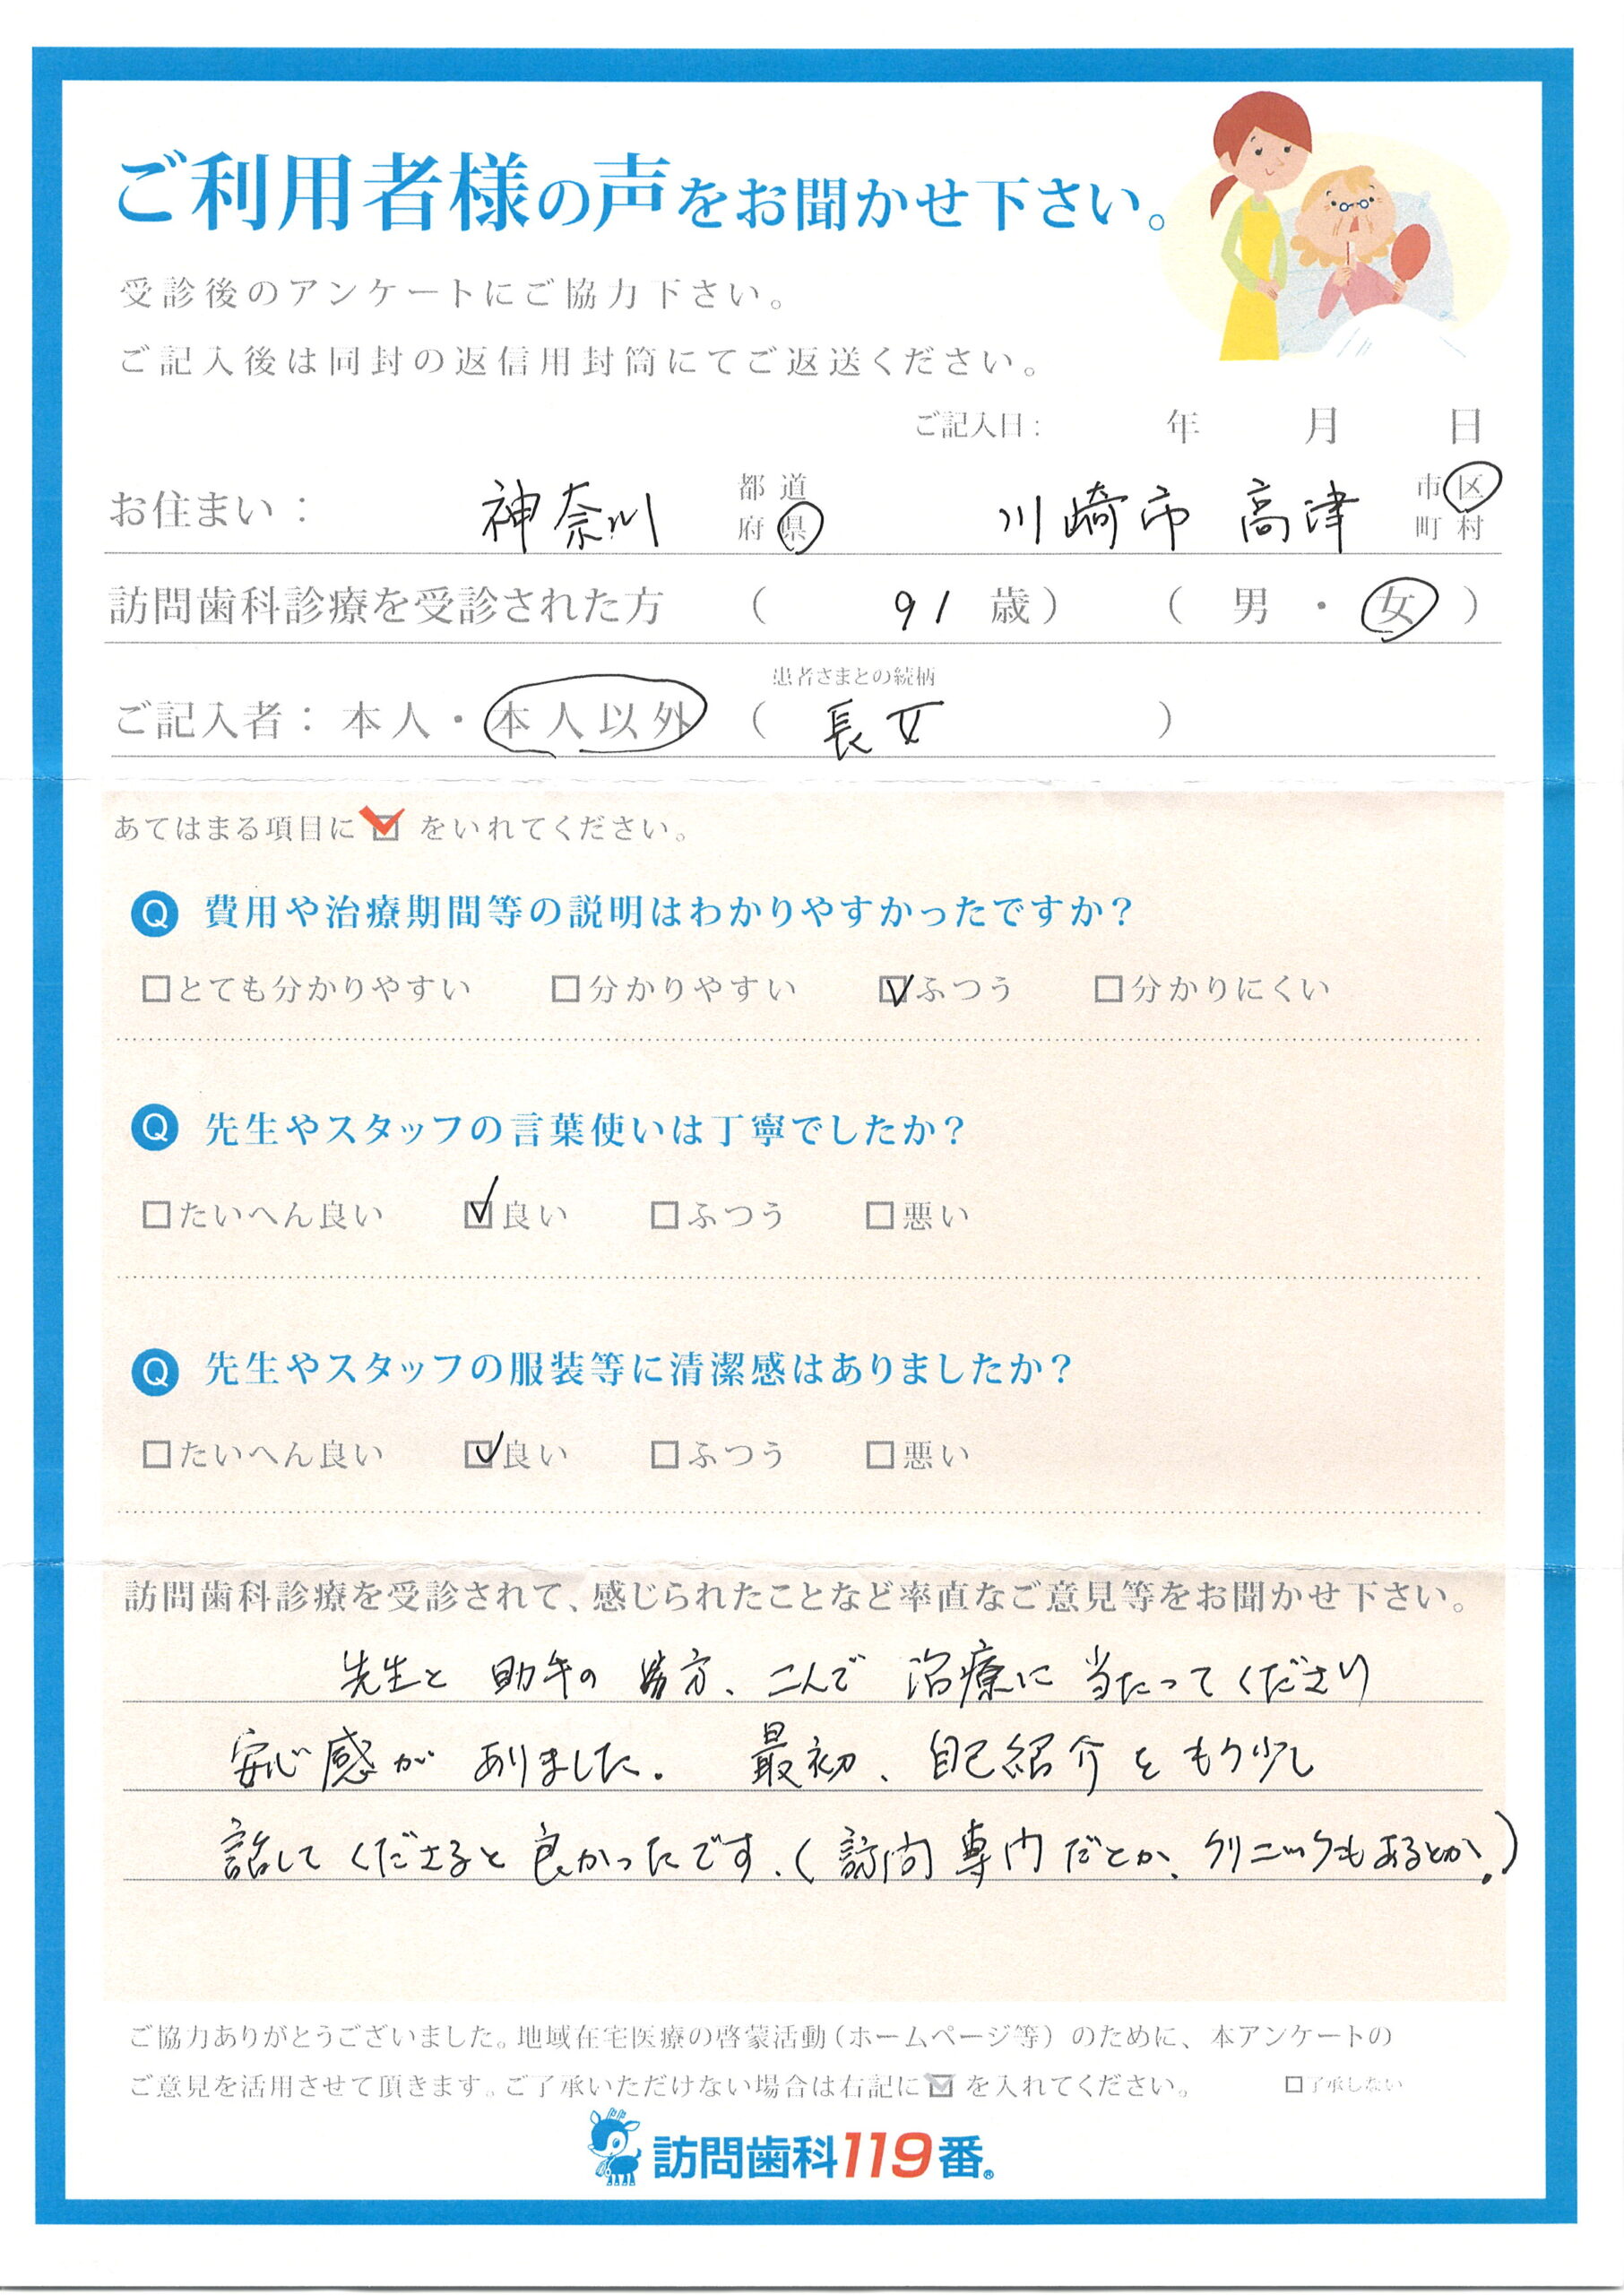 ご利用者様の声をお聞かせ下さい。
受診後のアンケートにご協力下さい。
ご記入後は同封の返信用封筒にてご返送ください。
ご記入日: 年 月 日
お住まい： 神奈川 都道府県 川崎市 高津 市区町村
訪問歯科診療を受診された方 （ 91 歳） （ 男 ・ 女 ）
患者さまとの続柄
ご記入者：本人・本人以外 （ 長女 ）
あてはまる項目に☑をいれてください。
Q 費用や治療期間等の説明はわかりやすかったですか？
□とても分かりやすい □分かりやすい ☑ふつう □分かりにくい
Q 先生やスタッフの言葉使いは丁寧でしたか？
□たいへん良い ☑良い □ふつう □悪い
Q 先生やスタッフの服装等に清潔感はありましたか？
□たいへん良い ☑良い □ふつう □悪い
訪問歯科診療を受診されて、感じられたことなど率直なご意見等をお聞かせ下さい。
先生と 助手の 方、 治療に 当たってくださり
安心感が ありました。 最初、自己紹介をもう少し
話してくださると良かったです。(訪問専門だとか、クリニックもあるとか。)
ご協力ありがとうございました。地域在宅医療の啓蒙活動（ホームページ等）のために、本アンケートの
ご意見を活用させて頂きます。ご了承いただけない場合は右記に☑を入れてください。 □了承しない
訪問歯科119番®